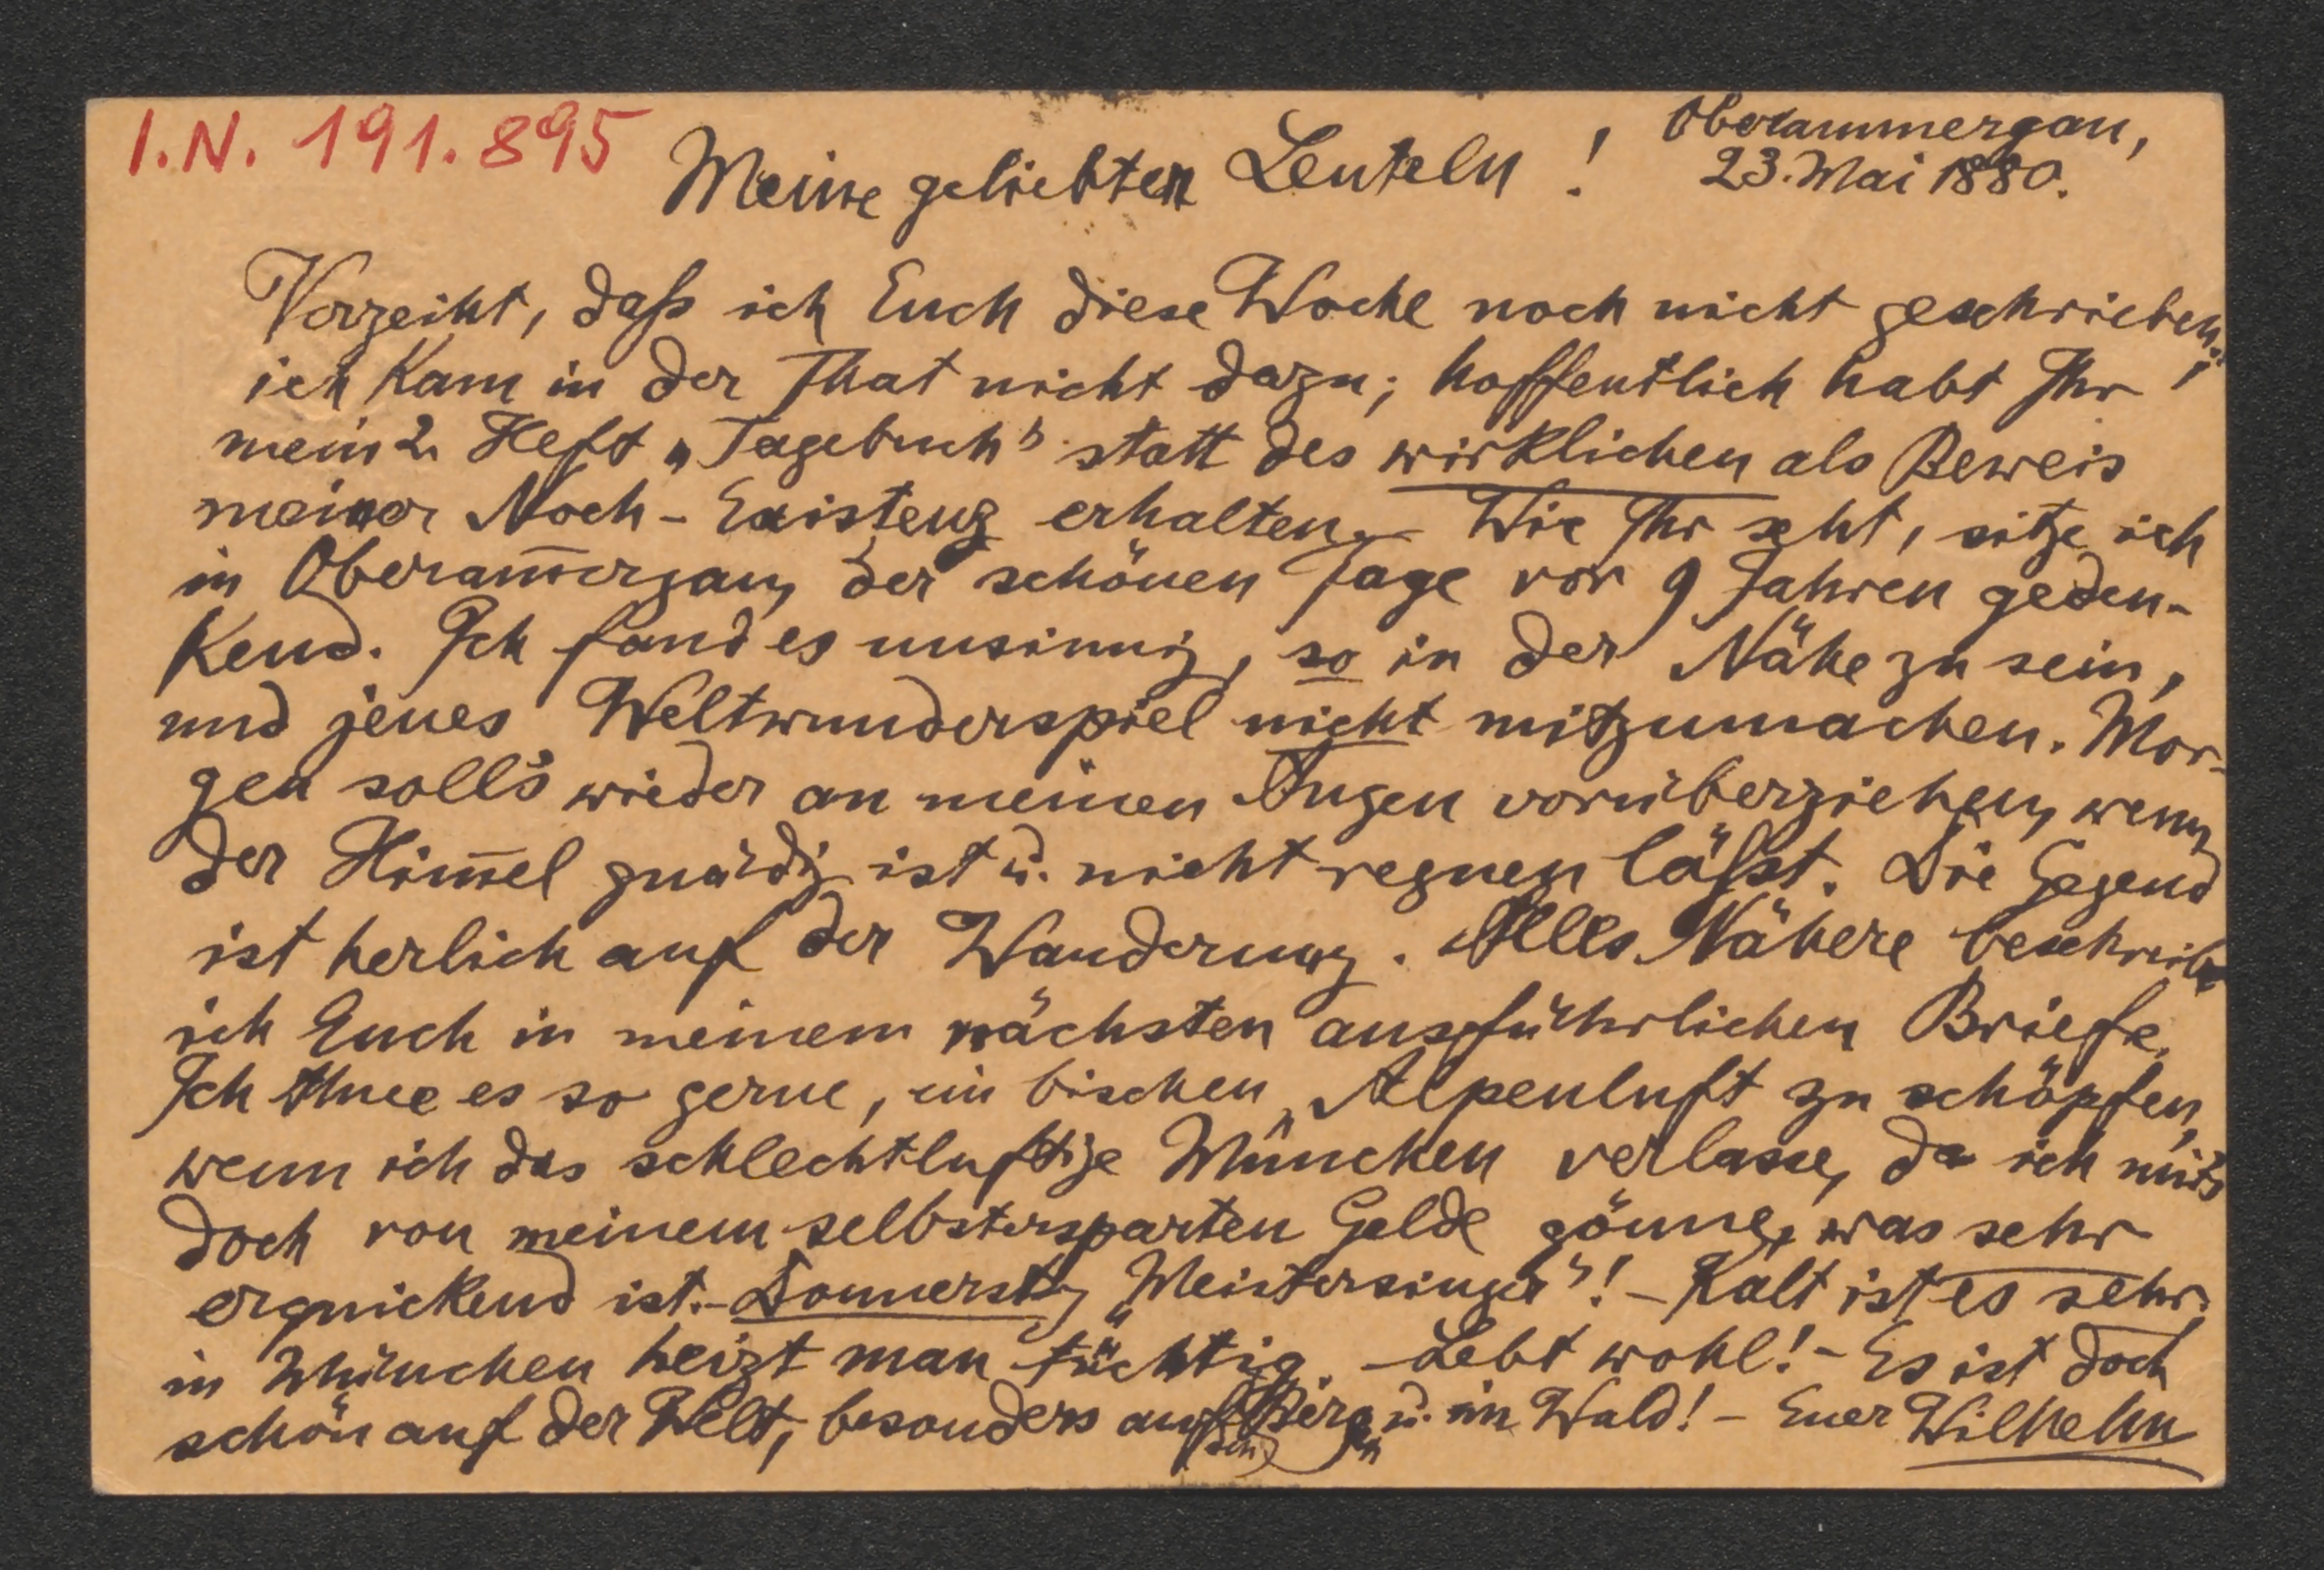 I.N. 191.895
Oberammergau,
23. Mai 1880.
Meine geliebten Leuteln!
Verzeiht, daß ich Euch diese Woche noch nicht geschrieben;
ich kam in der That nicht dazu; hoffentlich habt Ihr
mein 2. Heft „Tagebuch“ statt des wirklichen als Beweis
meiner Noch-Existenz erhalten. – Wie Ihr seht, sitze ich
in Oberam̅ergau, der schönen Tage vor 9 Jahren geden-
kend. Ich fand es unsinnig, so in der Nähe zu sein,
und jenes Weltwunderspiel nicht mitzumachen. Mor-
gen soll's wieder an meinen Augen vorüberziehen, wenn
der Him̅el gnädig ist u. nicht regnen läßt. Die Gegend
ist herlich auf der Wanderung. Alles Nähere beschreibe
ich Euch in meinem nächsten ausführlichen Briefe.
Ich thue es so gerne, ein bischen Alpenluft zu schöpfen,
wenn ich das schlechtluftige München verlasse, da ich mir's
doch von meinem selbstersparten Gelde gönne, was sehr
erquickend ist. – Donnerstag „Meistersinger“! – Kalt ist es sehr.
in München heizt man tüchtig. – Lebt wohl! – Es ist doch
schön auf der Welt, besonders auf den Bergen u. im Wald! – Euer Wilhelm